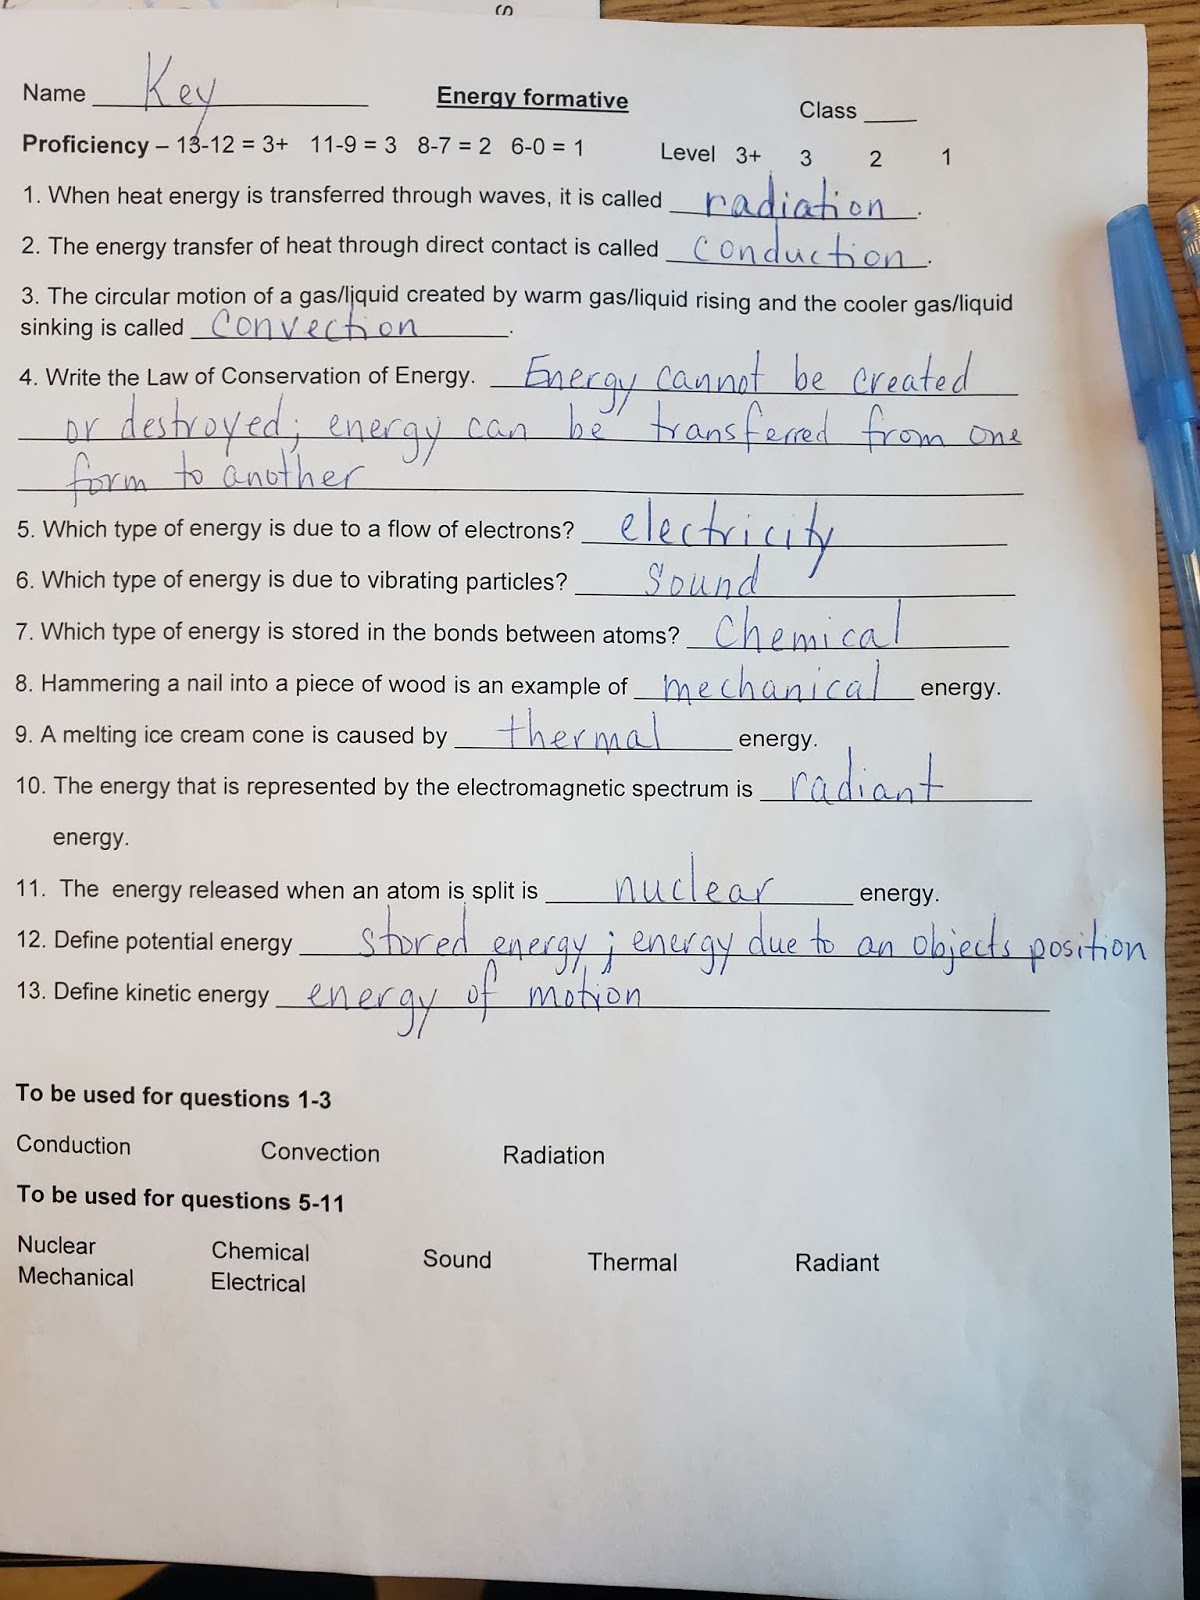 Name Key Energy formative Class ____
Proficiency – 13-12 = 3+ 11-9 = 3 8-7 = 2 6-0 = 1 Level 3+ 3 2 1
1. When heat energy is transferred through waves, it is called radiation.
2. The energy transfer of heat through direct contact is called conduction.
3. The circular motion of a gas/liquid created by warm gas/liquid rising and the cooler gas/liquid
sinking is called convection.
4. Write the Law of Conservation of Energy. Energy cannot be created
or destroyed; energy can be transferred from one
form to another
5. Which type of energy is due to a flow of electrons? electricity
6. Which type of energy is due to vibrating particles? Sound
7. Which type of energy is stored in the bonds between atoms? Chemical
8. Hammering a nail into a piece of wood is an example of mechanical energy.
9. A melting ice cream cone is caused by thermal energy.
10. The energy that is represented by the electromagnetic spectrum is radiant
energy.
11. The energy released when an atom is split is nuclear energy.
12. Define potential energy stored energy; energy due to an objects position
13. Define kinetic energy energy of motion
To be used for questions 1-3
Conduction Convection Radiation
To be used for questions 5-11
Nuclear Chemical Sound Thermal Radiant
Mechanical Electrical